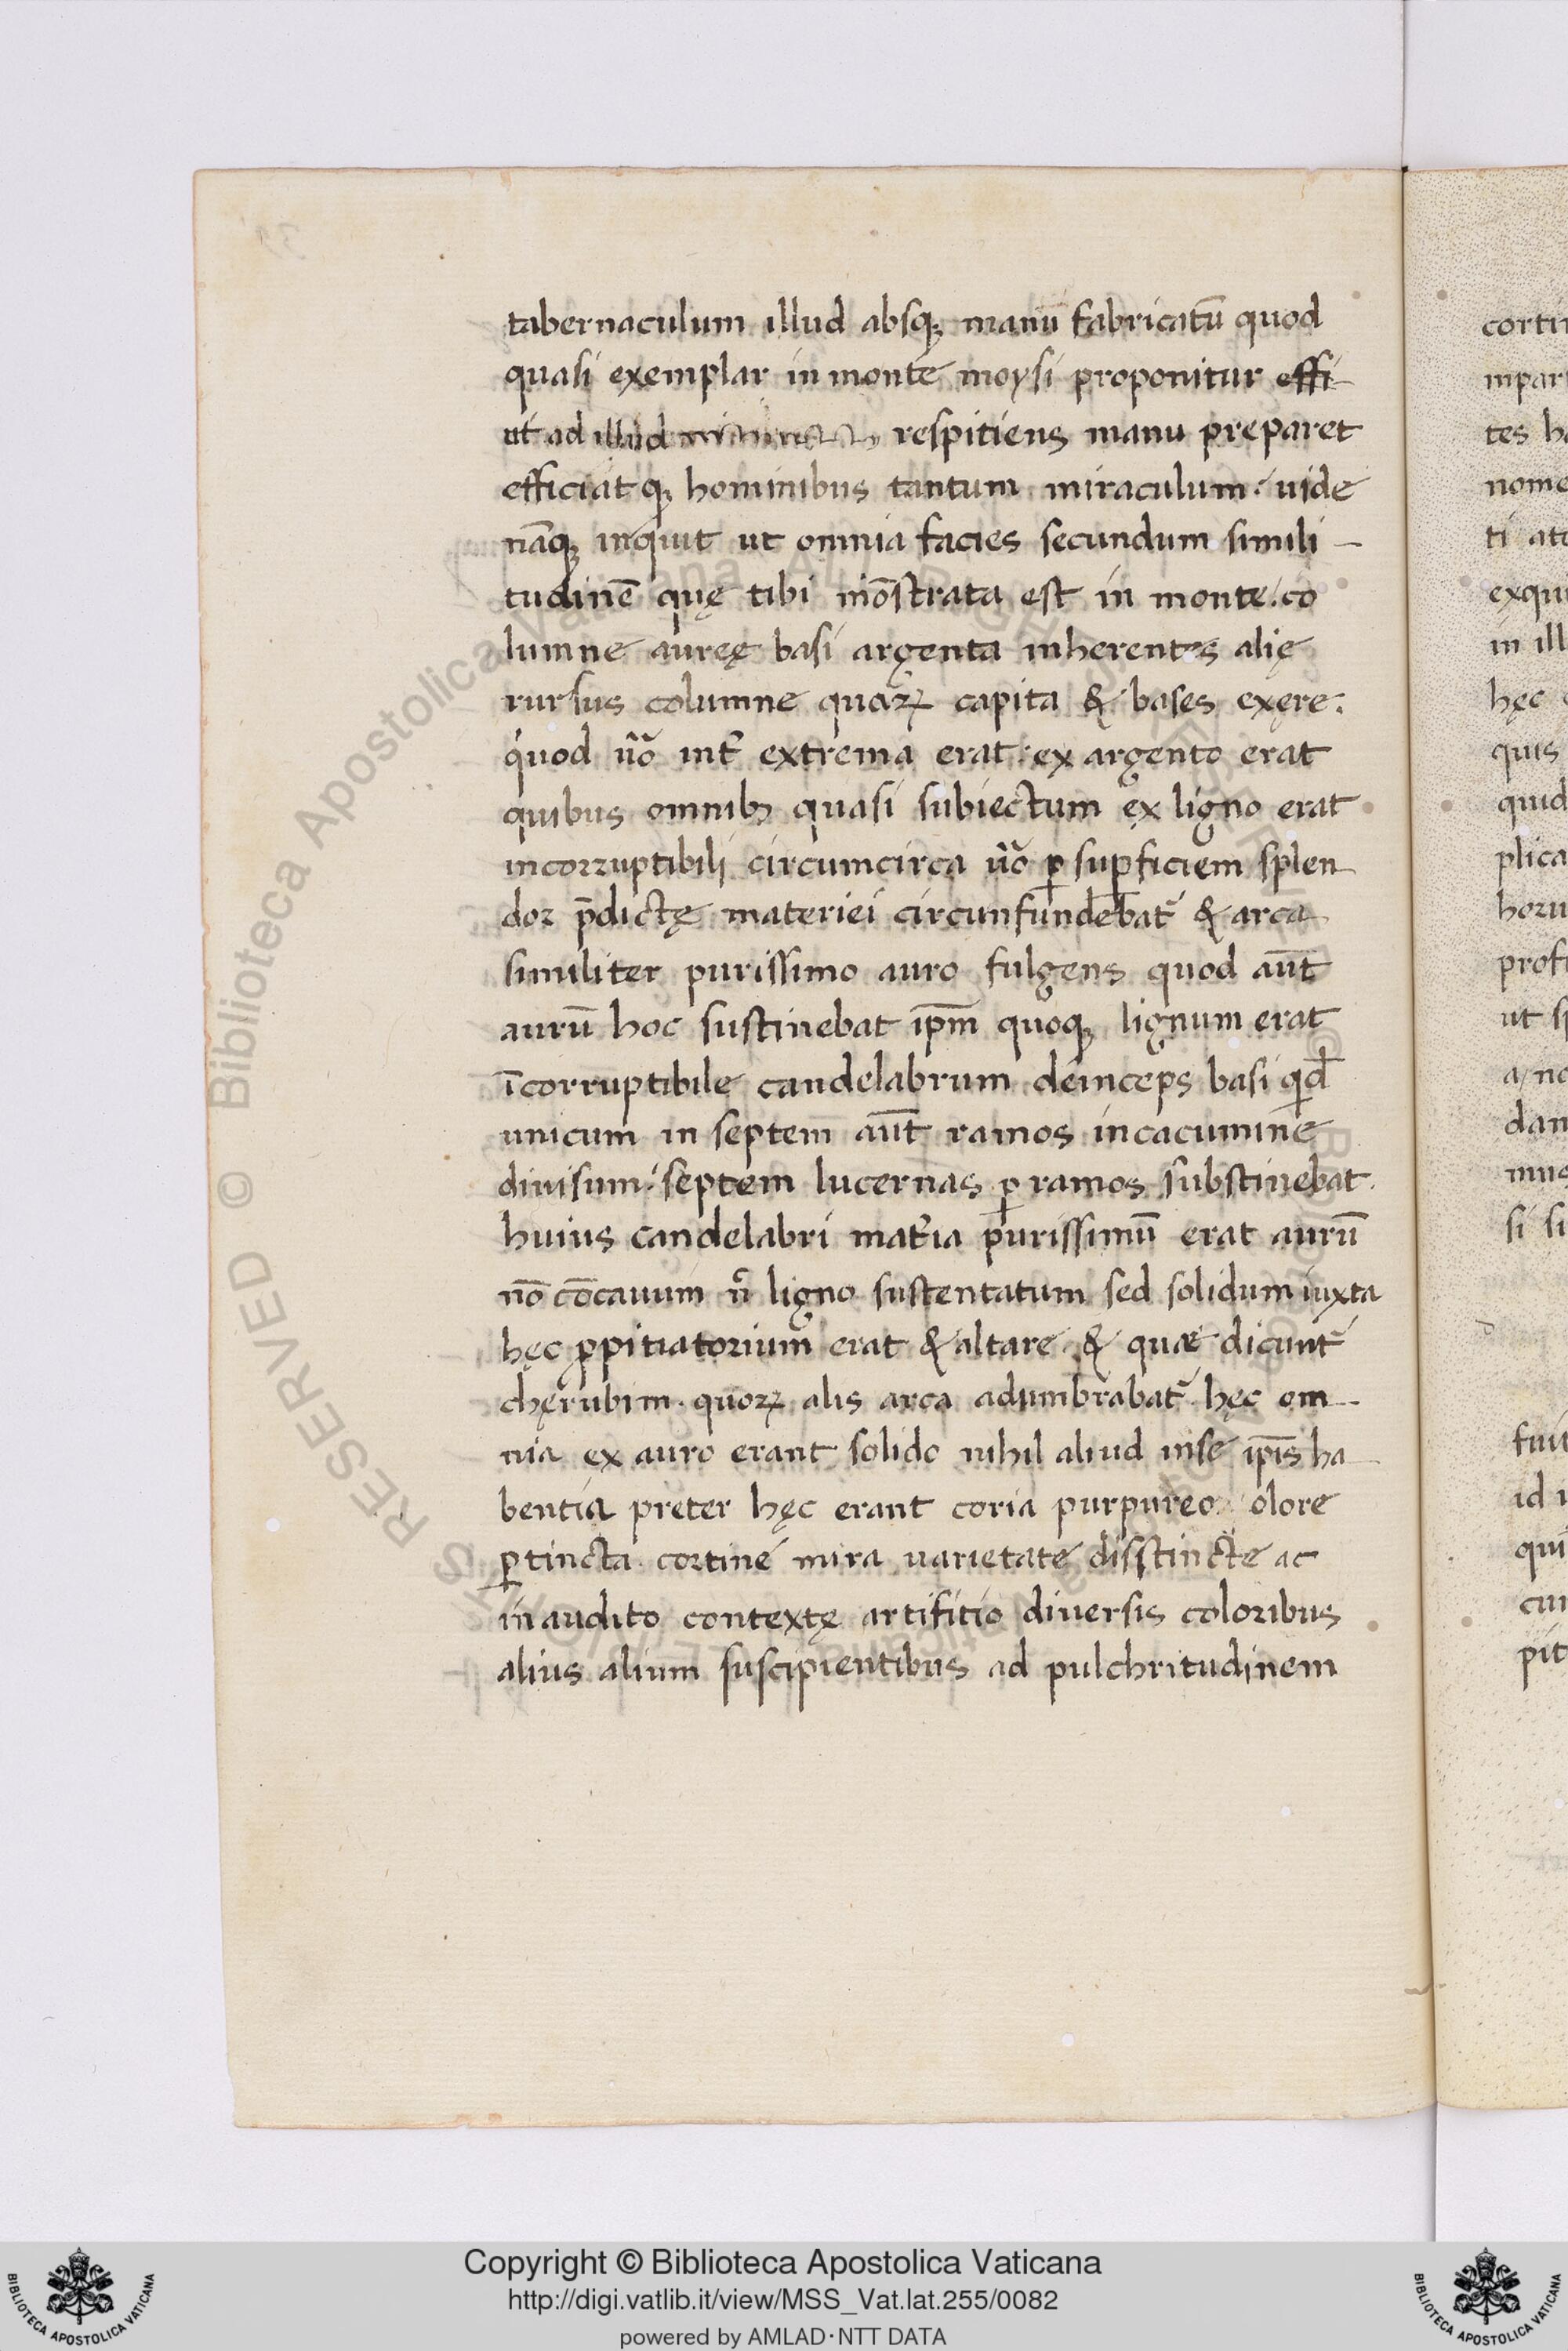 tabernaculum illud absq; manu fabricatū quod
quasi exemplar in monte moysi proponitur effi-
ut ad illud respitiens manu preparet
efficiat q; hominibus tantum miraculum. uide
nāq; inquit ut omnia facies secundum simili-
tudinē quę tibi mōstrata est in monte. co
lumne aureę basi argenta inherentes alię
rursus columne quaꝝ capita & bases exęre.
quod u̅o int̅ extrema erat. ex argento erat
quibus omnibꝫ quasi subiectum ex ligno erat
incorruptibili circumcirca u̅o ꝑ suꝑficiem splen-
dor p̅dictę materiei circunfundebat̅ & arca
similiter purissimo auro fulgens quod aut̅
aurū hoc sustinebat ip̅m quoq; lignum erat
īcorruptibile candelabrum deinceps basi qd̅
unicum in septem aut̅ ramos in cacumine
diuisum. septem lucernas ꝑ ramos substinebat.
huius candelabri mat̅ia purissimū erat aurū
nō cōcauum n̅ ligno sustentatum sed solidum iuxta
hęc ꝓpitiatorium erat & altare & quae dicunt̅
chęrubim. quoꝝ alis arca adumbrabat̅ hęc om-
nia ex auro erant solido nihil aliud in se ip̅is ha-
bentia preter hęc erant coria purpureo olore
ꝑtincta cortine mira uarietate disstincte ac
inaudito contextę artifitio diuersis coloribus
alius alium suscipientibus ad pulchritudinem
cortin
inpar
tes h
nome
ti at
exqu
in ill
hęc
quis
quid
plica
horu
prof
ut s
a, no
dan
mus
si si
fuit
id
qui
cui
pit
© Biblioteca Apostolica Vaticana ALL RIGHTS RESERVED
Copyright © Biblioteca Apostolica Vaticana
http://digi.vatlib.it/view/MSS_Vat.lat.255/0082
powered by AMLAD·NTT DATA
BIBLIOTECA APOSTOLICA VATICANA
BIBLIOTECA APOSTOLICA VATICANA